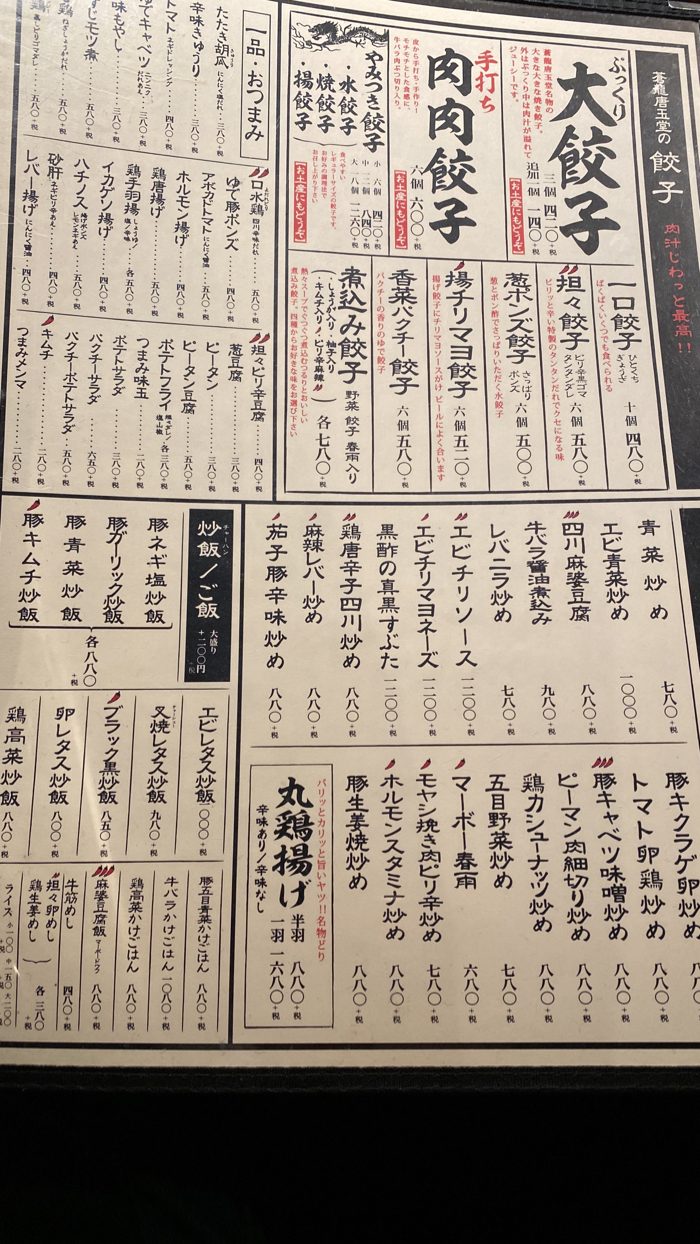 蒼龍唐玉堂の 餃子 肉汁じわっと最高!!
ぷっくり
大餃子
蒼龍唐玉堂名物の
大きな大きな焼き餃子。
外はぷっくり中は肉汁が溢れて
ジューシーです。
三個 四二〇+税
追加一個 一四〇+税
【お土産にもどうぞ】
手打ち
肉肉餃子
皮から手打ち・手作り!
モチモチとした食感と
牛バラ肉ぶつ切り入り。
六個 六〇〇+税
【お土産にもどうぞ】
やみつき餃子
・水餃子
・焼餃子
・揚餃子
小 六個 四二〇+税
中 十二個 八四〇+税
大 十八個 一二六〇+税
食べやすい
レギュラーサイズの餃子です。
お好みの調理法で
お召し上がり下さい
【お土産にもどうぞ】
一口餃子 ひとくちぎょうざ 十個 四八〇+税
ぱくぱくいくつでも食べられる
担々餃子 ピリ辛黒ゴマタンタンダレ 六個 五八〇+税
ピリッと辛い特製のタンタンだれでクセになる味
葱ポンズ餃子 さっぱりポンズ 六個 五〇〇+税
葱とポン酢でさっぱりいただく水餃子
揚チリマヨ餃子 六個 五二〇+税
揚げ餃子にチリマヨソースがけ ビールによく合います
香菜パクチー餃子 六個 五八〇+税
パクチーの香りのゆで餃子
煮込み餃子 野菜 餃子 春雨入り
(・しょうが入り ・柚子入り
・キムチ入り ・ピリ辛麻辣) 各 七八〇+税
熱々スープでぐつぐつ煮込むつるりとおいしい
煮込み餃子。四種からお好きな味をお選び下さい
一品 おつまみ
たたき胡瓜 にんにく塩だれ 三八〇+税
辛味きゅうり 三八〇+税
トマト ネギドレッシング 四八〇+税
でキャベツ 三八〇+税
味もやし 三八〇+税
すじモツ煮
口水鶏 四川辛味だれ 五八〇+税
ゆで豚ポンズ 五八〇+税
アボカドトマト にんにく醤油 五八〇+税
ホルモン揚げ 四八〇+税
鶏唐揚げ 五八〇+税
鶏手羽揚 しょうゆ/塩/辛味 各 五八〇+税
イカゲソ揚げ 四八〇+税
ハチノス 柚子ポンズレモンネギあえ 五八〇+税
砂肝 ネギピリ辛あえ 四八〇+税
レバー揚げ にんにく醤油 四八〇+税
担々ピリ辛豆腐 四八〇+税
葱豆腐 三八〇+税
ピータン 三八〇+税
ピータン豆腐 五八〇+税
ポテトフライ 各 三八〇+税
つまみ味玉 二八〇+税
ポテトサラダ 三八〇+税
パクチーサラダ 六五〇+税
パクチーポテトサラダ 五八〇+税
キムチ 二八〇+税
つまみメンマ 二八〇+税
青菜炒め 七八〇+税
エビ青菜炒め 一〇〇〇+税
四川麻婆豆腐 八八〇+税
牛バラ醤油煮込み 九八〇+税
レバニラ炒め 七八〇+税
エビチリソース 一二〇〇+税
エビチリマヨネーズ 一二〇〇+税
黒酢の真黒すぶた 一二〇〇+税
鶏唐辛子四川炒め 八八〇+税
麻辣レバー炒め 八八〇+税
茄子豚辛味炒め 八八〇+税
豚キクラゲ卵炒め
トマト卵鶏炒め 八八〇+税
豚キャベツ味噌炒め 八八〇+税
ピーマン肉細切り炒め 八八〇+税
鶏カシューナッツ炒め 八八〇+税
五目野菜炒め 七八〇+税
マーボー春雨 六八〇+税
モヤシ挽き肉ピリ辛炒め 七八〇+税
ホルモンスタミナ炒め 八八〇+税
豚生姜焼炒め 八八〇+税
パリッとカリッと旨いヤツ!!名物どり
丸鶏揚げ 半羽 八八〇+税
一羽 一六八〇+税
辛味あり/辛味なし
炒飯/ご飯 チャーハン 大盛り+二〇〇円+税
豚ネギ塩炒飯
豚ガーリック炒飯
豚青菜炒飯
豚キムチ炒飯
各八八〇+税
エビレタス炒飯
叉焼レタス炒飯 九八〇+税
ブラック黒炒飯 八五〇+税
卵レタス炒飯 八〇〇+税
鶏高菜炒飯 八八〇+税
豚五目青菜かけごはん 八八〇+税
牛バラかけごはん 一〇八〇+税
鶏高菜かけごはん 八八〇+税
麻婆豆腐飯 マーボードウフ 八八〇+税
牛筋めし 四八〇+税
担々卵めし
鶏生姜めし
各 三八〇+税
ライス 小一〇〇 中一五〇 大二〇〇